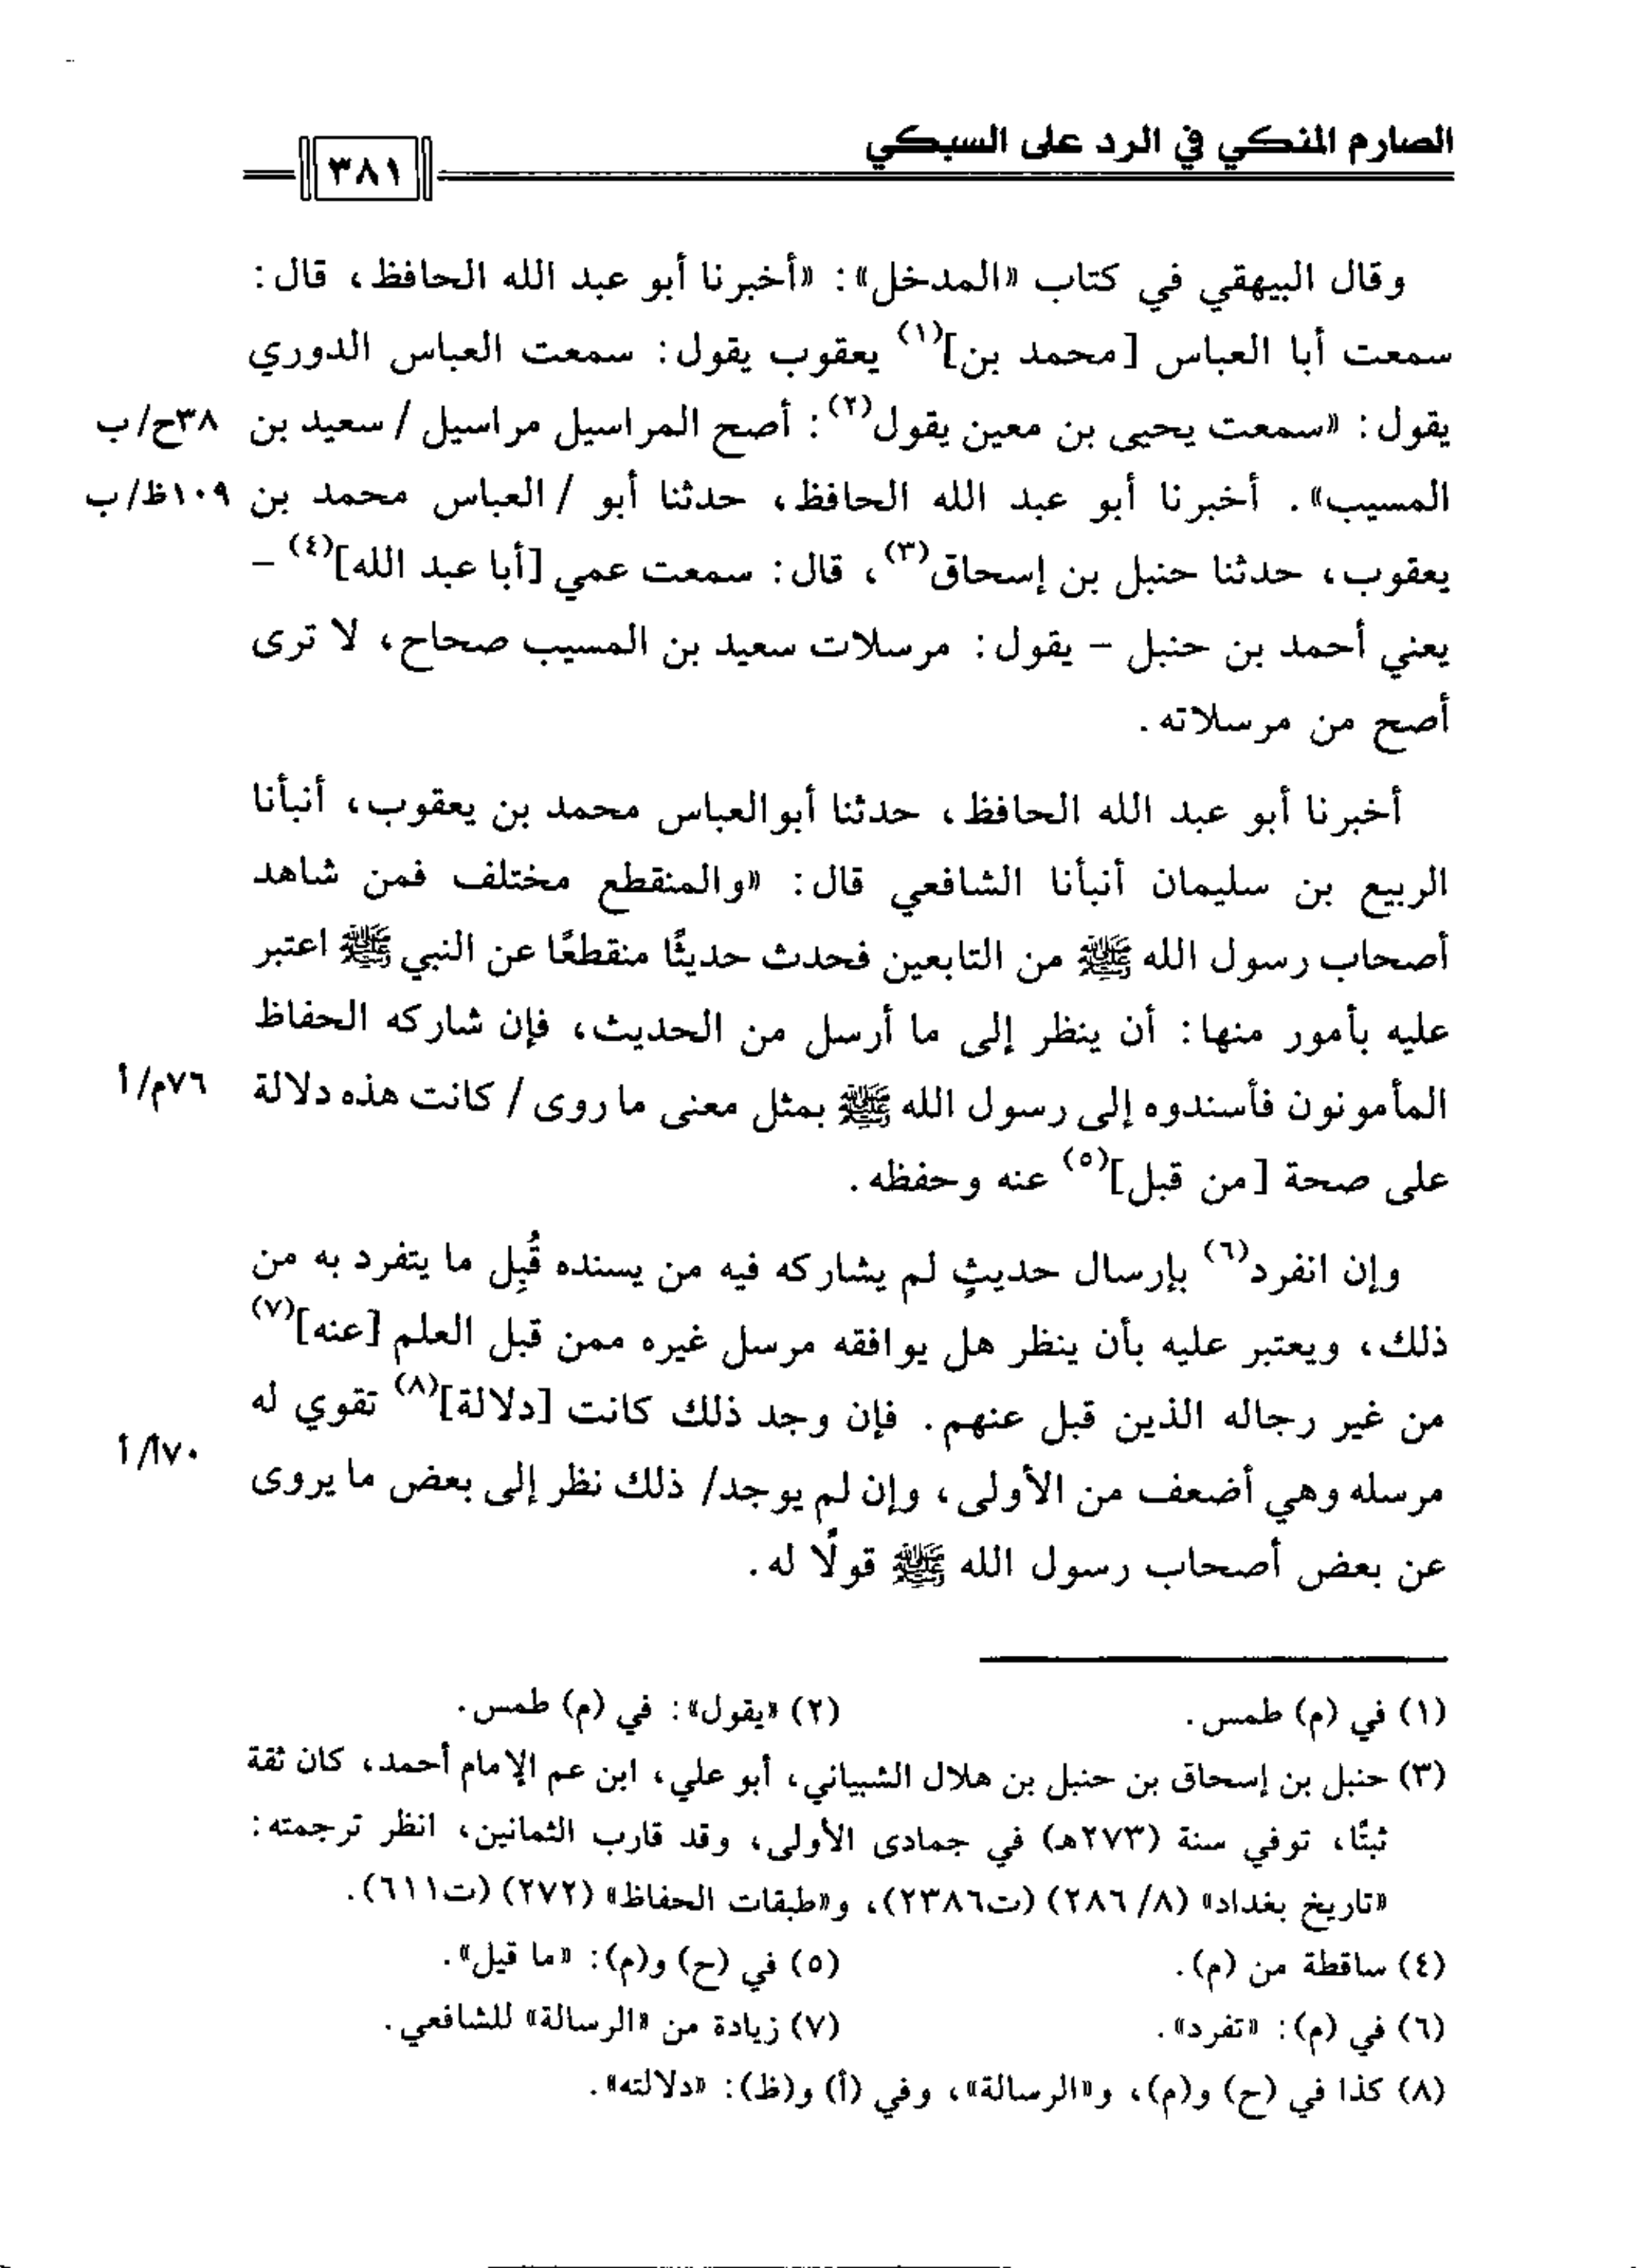 الصارم المنكي في الرد على السبكي
٣٨١
وقال البيهقي في كتاب «المدخل»: «أخبرنا أبو عبد الله الحافظ، قال:
سمعت أبا العباس [محمد بن](١) يعقوب يقول: سمعت العباس الدوري
يقول: «سمعت يحيى بن معين يقول(٢): أصح المراسيل مراسيل / سعيد بن ٣٨ح/ب
المسيب». أخبرنا أبو عبد الله الحافظ، حدثنا أبو / العباس محمد بن ١٠٩ظ/ب
يعقوب، حدثنا حنبل بن إسحاق(٣)، قال: سمعت عمي [أبا عبد الله](٤) -
يعني أحمد بن حنبل - يقول: مرسلات سعيد بن المسيب صحاح، لا ترى
أصح من مرسلاته.
أخبرنا أبو عبد الله الحافظ، حدثنا أبوالعباس محمد بن يعقوب، أنبأنا
الربيع بن سليمان أنبأنا الشافعي قال: «والمنقطع مختلف فمن شاهد
أصحاب رسول الله ﷺ من التابعين فحدث حديثًا منقطعًا عن النبي ﷺ اعتبر
عليه بأمور منها: أن ينظر إلى ما أرسل من الحديث، فإن شاركه الحفاظ
المأمونون فأسندوه إلى رسول الله ﷺ بمثل معنى ما روى / كانت هذه دلالة ٧٦م/أ
على صحة [من قبل](٥) عنه وحفظه.
وإن انفرد(٦) بإرسال حديثٍ لم يشاركه فيه من يسنده قُبِل ما يتفرد به من
ذلك، ويعتبر عليه بأن ينظر هل يوافقه مرسل غيره ممن قبل العلم [عنه](٧)
من غير رجاله الذين قبل عنهم. فإن وجد ذلك كانت [دلالة](٨) تقوي له
مرسله وهي أضعف من الأولى، وإن لم يوجد/ ذلك نظر إلى بعض ما يروى ٧٠أ/أ
عن بعض أصحاب رسول الله ﷺ قولًا له.
(١) في (م) طمس. (٢) «يقول»: في (م) طمس.
(٣) حنبل بن إسحاق بن حنبل بن هلال الشيباني، أبو علي، ابن عم الإمام أحمد، كان ثقة
ثبتًا، توفي سنة (٢٧٣هـ) في جمادى الأولى، وقد قارب الثمانين، انظر ترجمته:
«تاريخ بغداد» (٨/ ٢٨٦) (ت٢٣٨٦)، و«طبقات الحفاظ» (٢٧٢) (ت٦١١).
(٤) ساقطة من (م). (٥) في (ح) و(م): «ما قيل».
(٦) في (م): «تفرد». (٧) زيادة من «الرسالة» للشافعي.
(٨) كذا في (ح) و(م)، و«الرسالة»، وفي (أ) و(ظ): «دلالته».